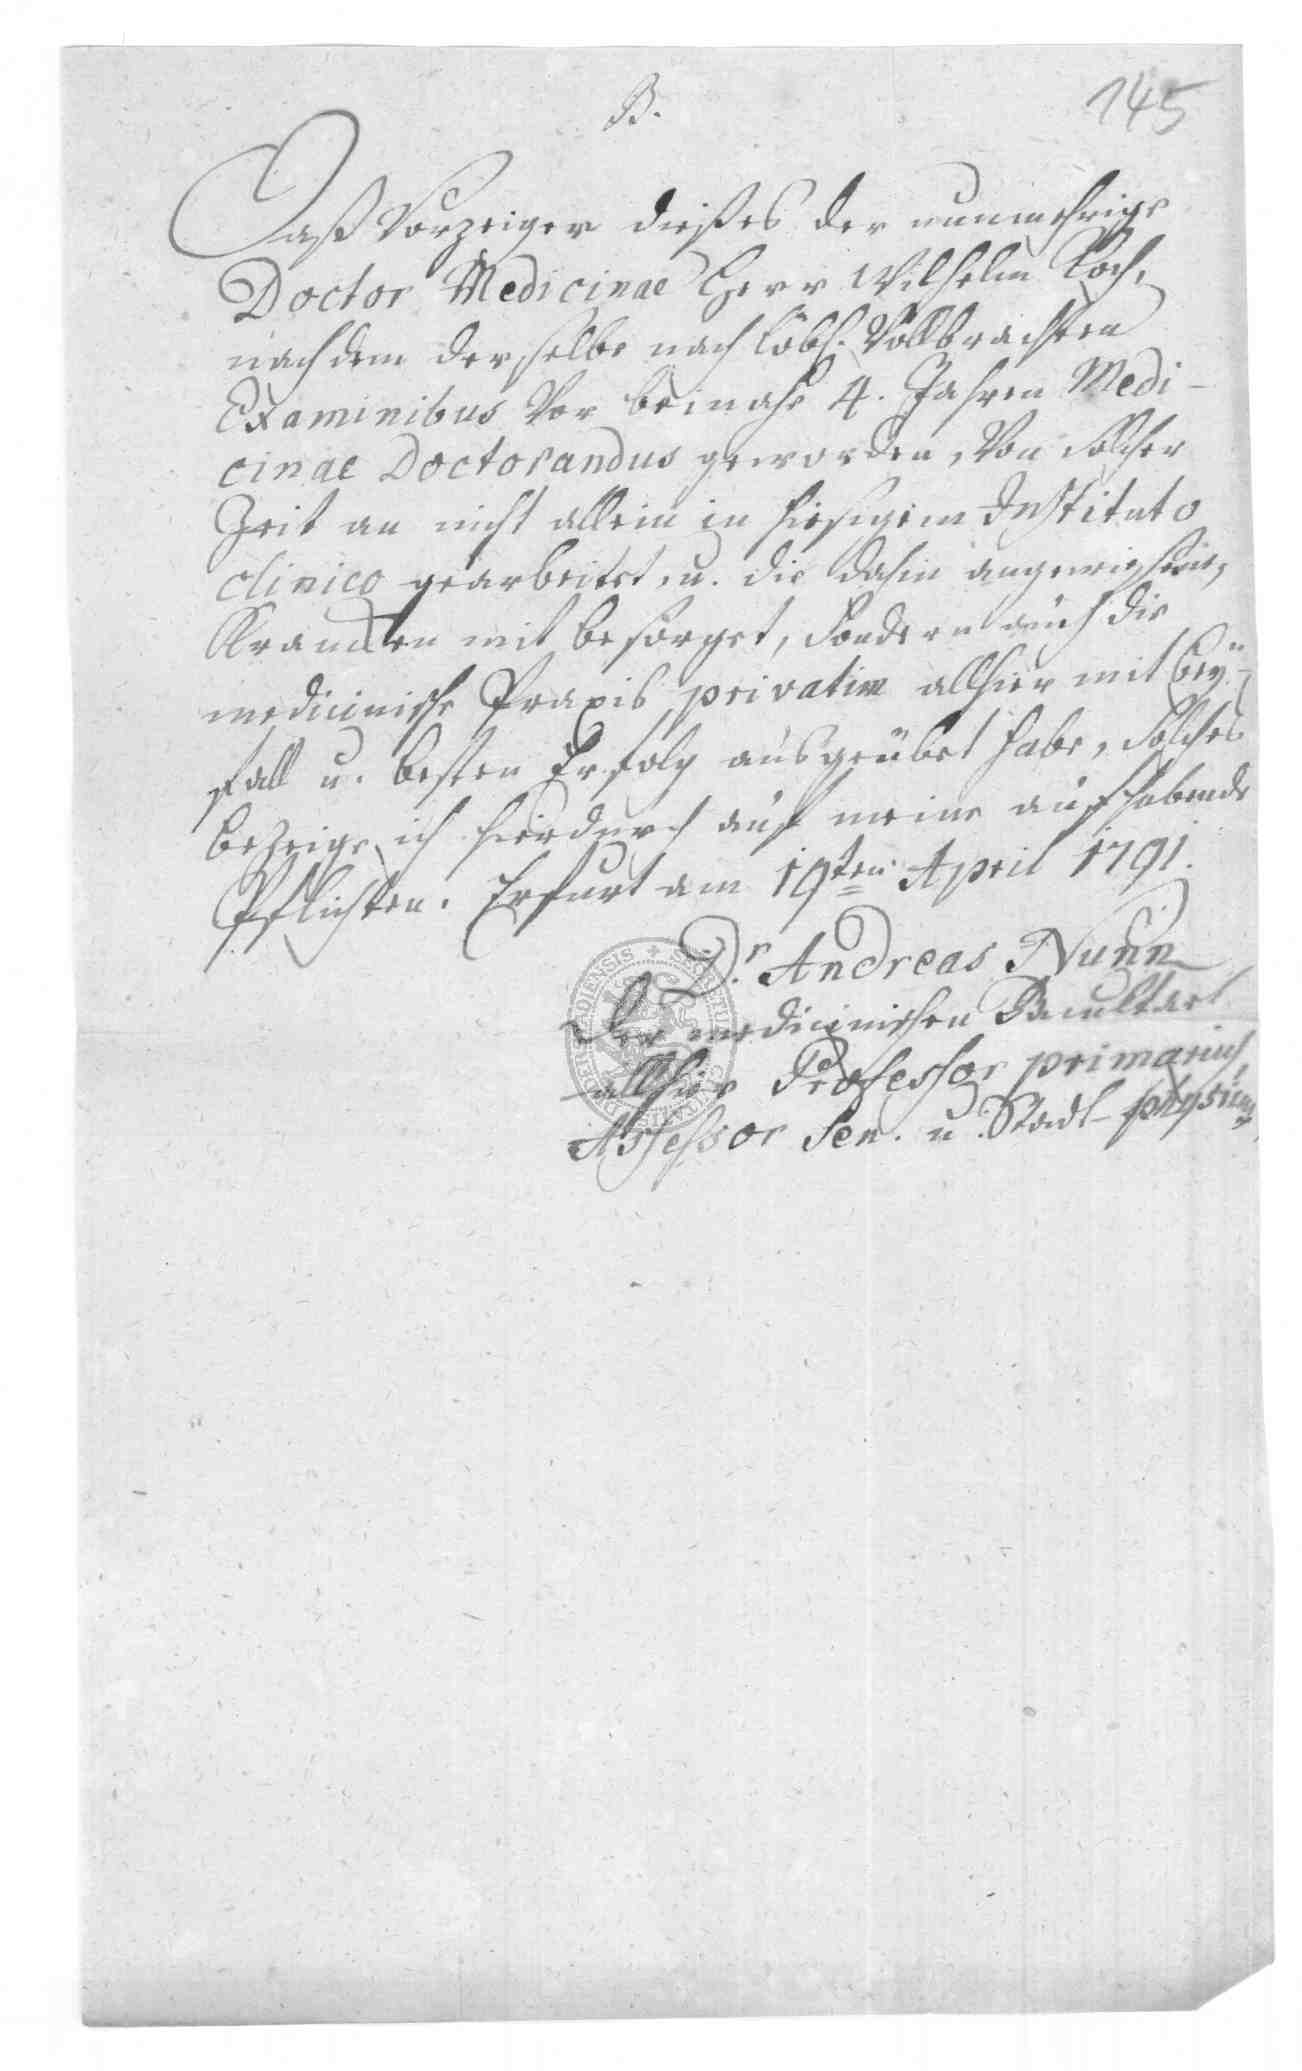 B.
145
Daß Vorzeiger dießes der nunmehrige
Doctor Medicinae Herr Wilhelm Koch,
nachdem derselbe nach löbl. Vollbrachten
Examinibus Vor beinahe 4. Jahren Medi-
cinae Doctorandus geworden, Von solcher
Zeit an nicht allein in hiesigem Instituto
clinico gearbeitet, u. die dahin
Krancken mit besorget, sondern auch die
medicinische Praxis privatim allhier mit Bey-
fall u. besten Erfolg ausgeübet habe, solches
bezeige ich hierdurch auf meine aufhabende
Pflichten. Erfurt am 19ten April 1791.
Dr. Andreas Nunn
der medicinischen Facultaet
allhier Professor primarius
Assessor Sen. u. Stadt-physicus